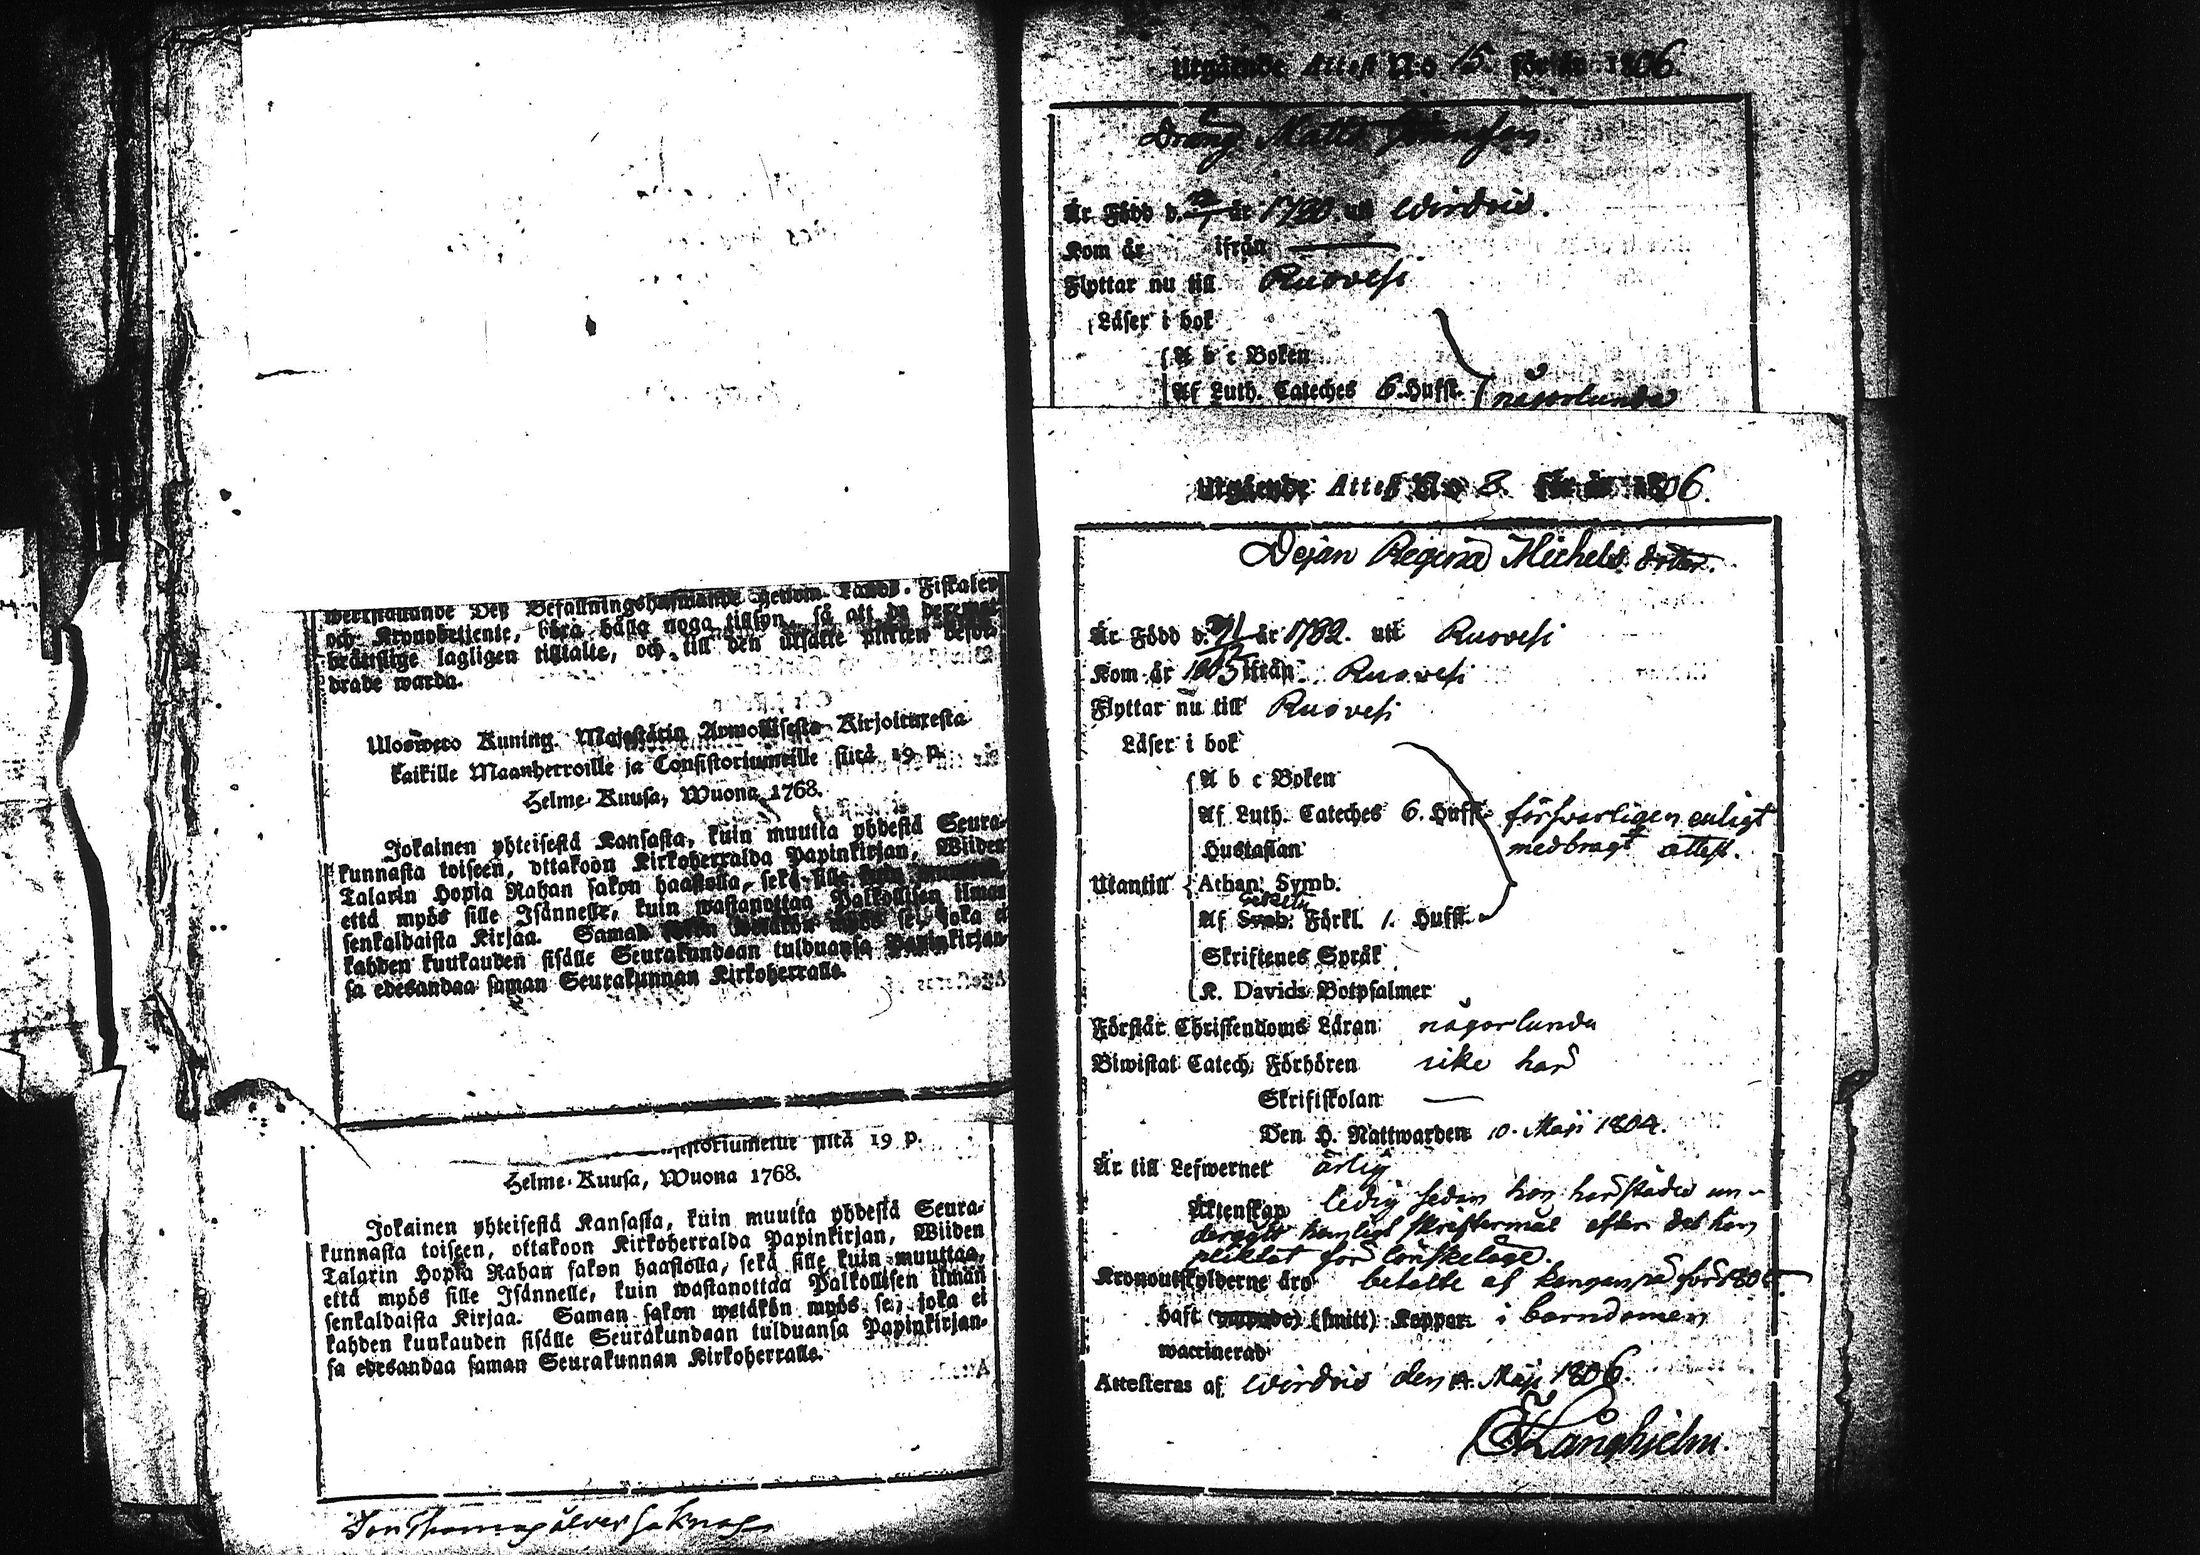 werkställande Deß Befallningshafwande genom Lands-Fiskaler
och Kronobetjente, böra hålla noga tillsyn, så att de
bråttslige lagligen tilltalte, och till den utsatte plikten befor-
drade warda.
Uloswero Kuning. Majestätin Armollisesta Kirjoituxesta
kaikille Maanherroille ja Consistoriumeille siitä 19 p.
Helme-Kuusa, Wuona 1768.
Jokainen yhteisestä Kansasta, kuin muutta yhdestä Seura-
kunnasta toiseen, ottakoon Kirkoherralda Papinkirjan, Wiiden
Talarin Hopia Rahan sakon haastolla, sekä sille kuin
että myös sille Isännelle, kuin wastanottaa Palkollisen ilman
senkaldaista Kirjaa. Saman sakon wetäkön myös se, joka ei
kahden kuukauden sisälle Seurakundaan tulduansa Papinkirjan-
sa edesandaa saman Seurakunnan Kirkoherralle.
siitä 19 p.
Helme-Kuusa, Wuona 1768.
Jokainen yhteisestä Kansasta, kuin muutta yhdestä Seura-
kunnasta toiseen, ottakoon Kirkoherralda Papinkirjan, Wiiden
Talarin Hopia Rahan sakon haastolla, sekä sille kuin muuttaa,
että myös sille Isännelle, kuin wastanottaa Palkollisen ilman
senkaldaista Kirjaa. Saman sakon wetäkön myös se, joka ei
kahden kuukauden sisälle Seurakundaan tulduansa Papinkirjan-
sa edesandaa saman Seurakunnan Kirkoherralle.
Utgående Attest N:o 15. för år 1806.
Dräng Matts
Är Född d. år 1780 uti Wirdois.
Kom år ifrån
Flyttar nu till Ruovesi
Läser i bok
A b c Boken
Af Luth. Cateches 6. Hufst. någorlunda
Utgående Attest N:o 8. för år 1806.
Dejan Regina Michels dotter.
Är Född d. år 1782. uti Ruovesi
Kom år 1805 ifrån Ruovesi
Flyttar nu till Ruovesi
Läser i bok
A b c Boken
Af Luth. Cateches 6. Hufst. försvarligen enligt
Hustaflan medbragt attest.
Utantill Athan. Symb.
Af Förkl. 1. Hufst.
Skriftenes Språk
K. Davids Botpsalmer
Förstår Christendoms Läran någorlunda
Biwistat Catech. Förhören icke här
Skriftskolan —
Den H. Nattwarden 10. Maji 1804.
Är till Lefwernet ärlig
Äktenskap ledig sedan hon härstädes un-
dergått hemligt skriftermål efter det hon
pliktat för lönskeläge.
Kronoutskylderne äro betalte af
haft (smitt) Koppor i barndomen
waccinerad
Attesteras af Wirdois den Maji 1806.
Långhjelm.